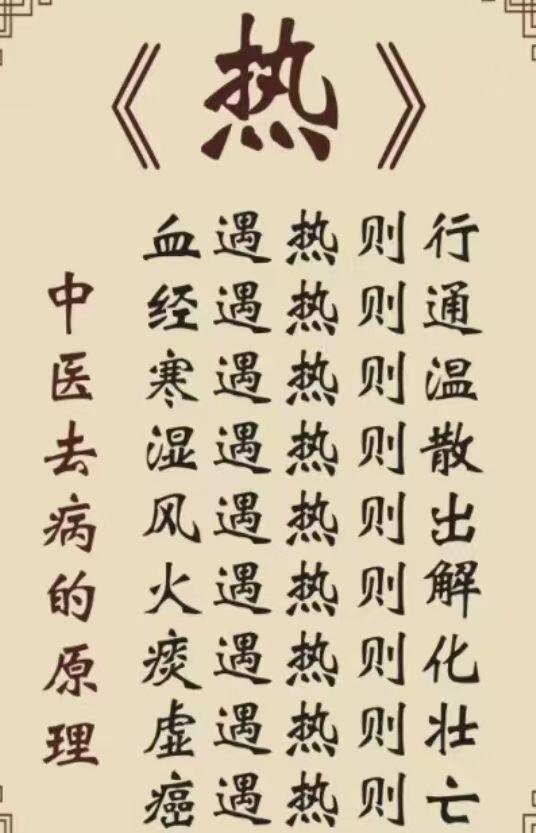 《热》
血遇热则行
经遇热则通
寒遇热则温
湿遇热则散
风遇热则出
火遇热则解
痰遇热则化
虚遇热则壮
癌遇热则亡
中医去病的原理